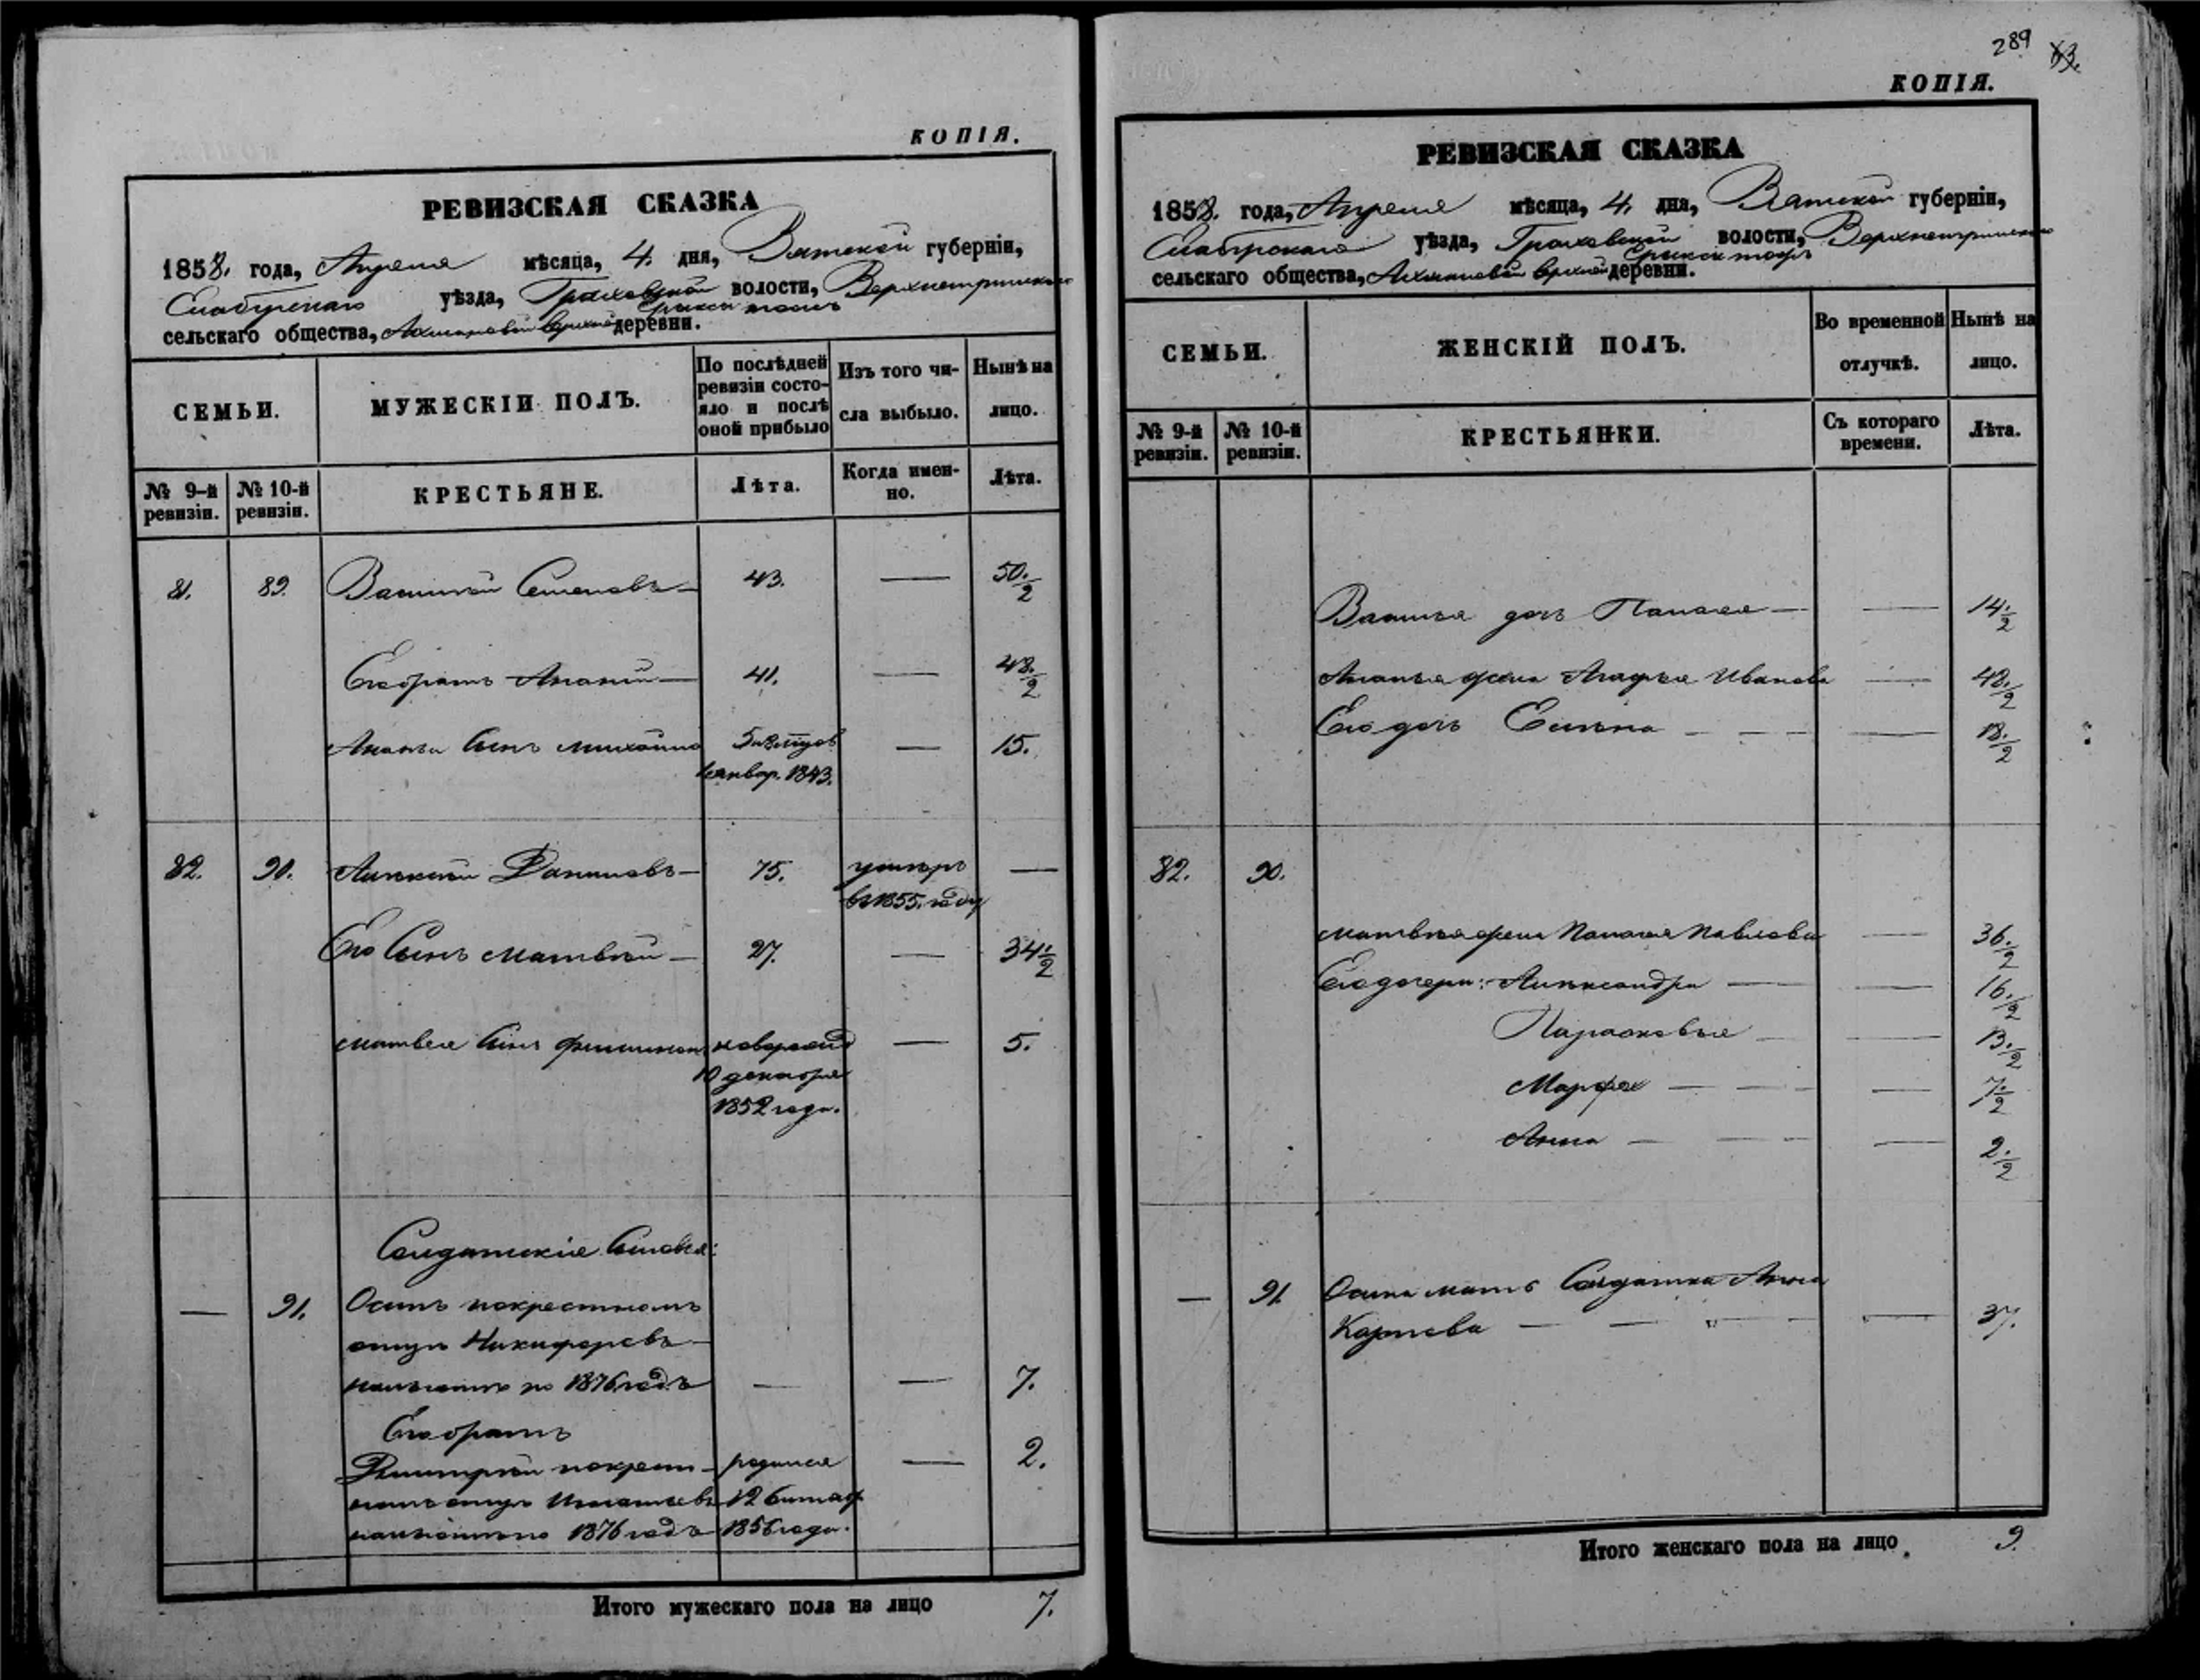 КОПІЯ.
РЕВИЗСКАЯ СКАЗКА
1858. года, Апреля мѣсяца, 4. дня, Вятской губерніи,
Елабужскаго уѣзда, Граховской волости,
сельскаго общества, деревни.
СЕМЬИ.
МУЖЕСКІЙ ПОЛЪ.
По послѣдней ревизіи состояло и послѣ оной прибыло
Изъ того числа выбыло.
Нынѣ на лицо.
№ 9-й ревизіи.
№ 10-й ревизіи.
КРЕСТЬЯНЕ.
Лѣта.
Когда именно.
Лѣта.
81. 89. Василій Семеновъ — 43. — 50 1/2
Его братъ Ананій — 41. — 48 1/2
Ананьи сынъ Михайло — 15.
январ. 1843.
82. 90. Алексѣй Даниловъ — 75. умеръ —
въ 1855. году
Его Сынъ Матвѣй — 27. — 34 1/2
Матвея Сынъ новорожд — 5.
10 декабря
1852 года.
Солдатскіе Сыновья:
— 91. Осипъ покрестному
отцу Никифоровъ —
по 1876 годъ — — 7.
Его братъ
Дмитрій покрест- родился — 2.
ному отцу Игнатьевъ 12
по 1876 годъ 1856 года.
Итого мужескаго пола на лицо 7.
289 83.
КОПІЯ.
РЕВИЗСКАЯ СКАЗКА
1858. года, Апреля мѣсяца, 4. дня, Вятской губерніи,
Елабужскаго уѣзда, Граховской волости,
сельскаго общества, деревни.
СЕМЬИ.
ЖЕНСКІЙ ПОЛЪ.
Во временной отлучкѣ.
Нынѣ на лицо.
№ 9-й ревизіи.
№ 10-й ревизіи.
КРЕСТЬЯНКИ.
Съ котораго времени.
Лѣта.
Василья дочь Палагея — — 14 1/2
Ананья жена Агафья Иванова — 48 1/2
Его дочь — — 18 1/2
82. 90.
Матвѣя жена Палагея Павлова — 36 1/2
Его дочери: Александра — — 16 1/2
Парасковья — — 13 1/2
Марфа — — 7 1/2
Анна — — 2 1/2
— 91. Осипа мать Солдатка Анна
Карпева — — 37.
Итого женскаго пола на лицо 9.